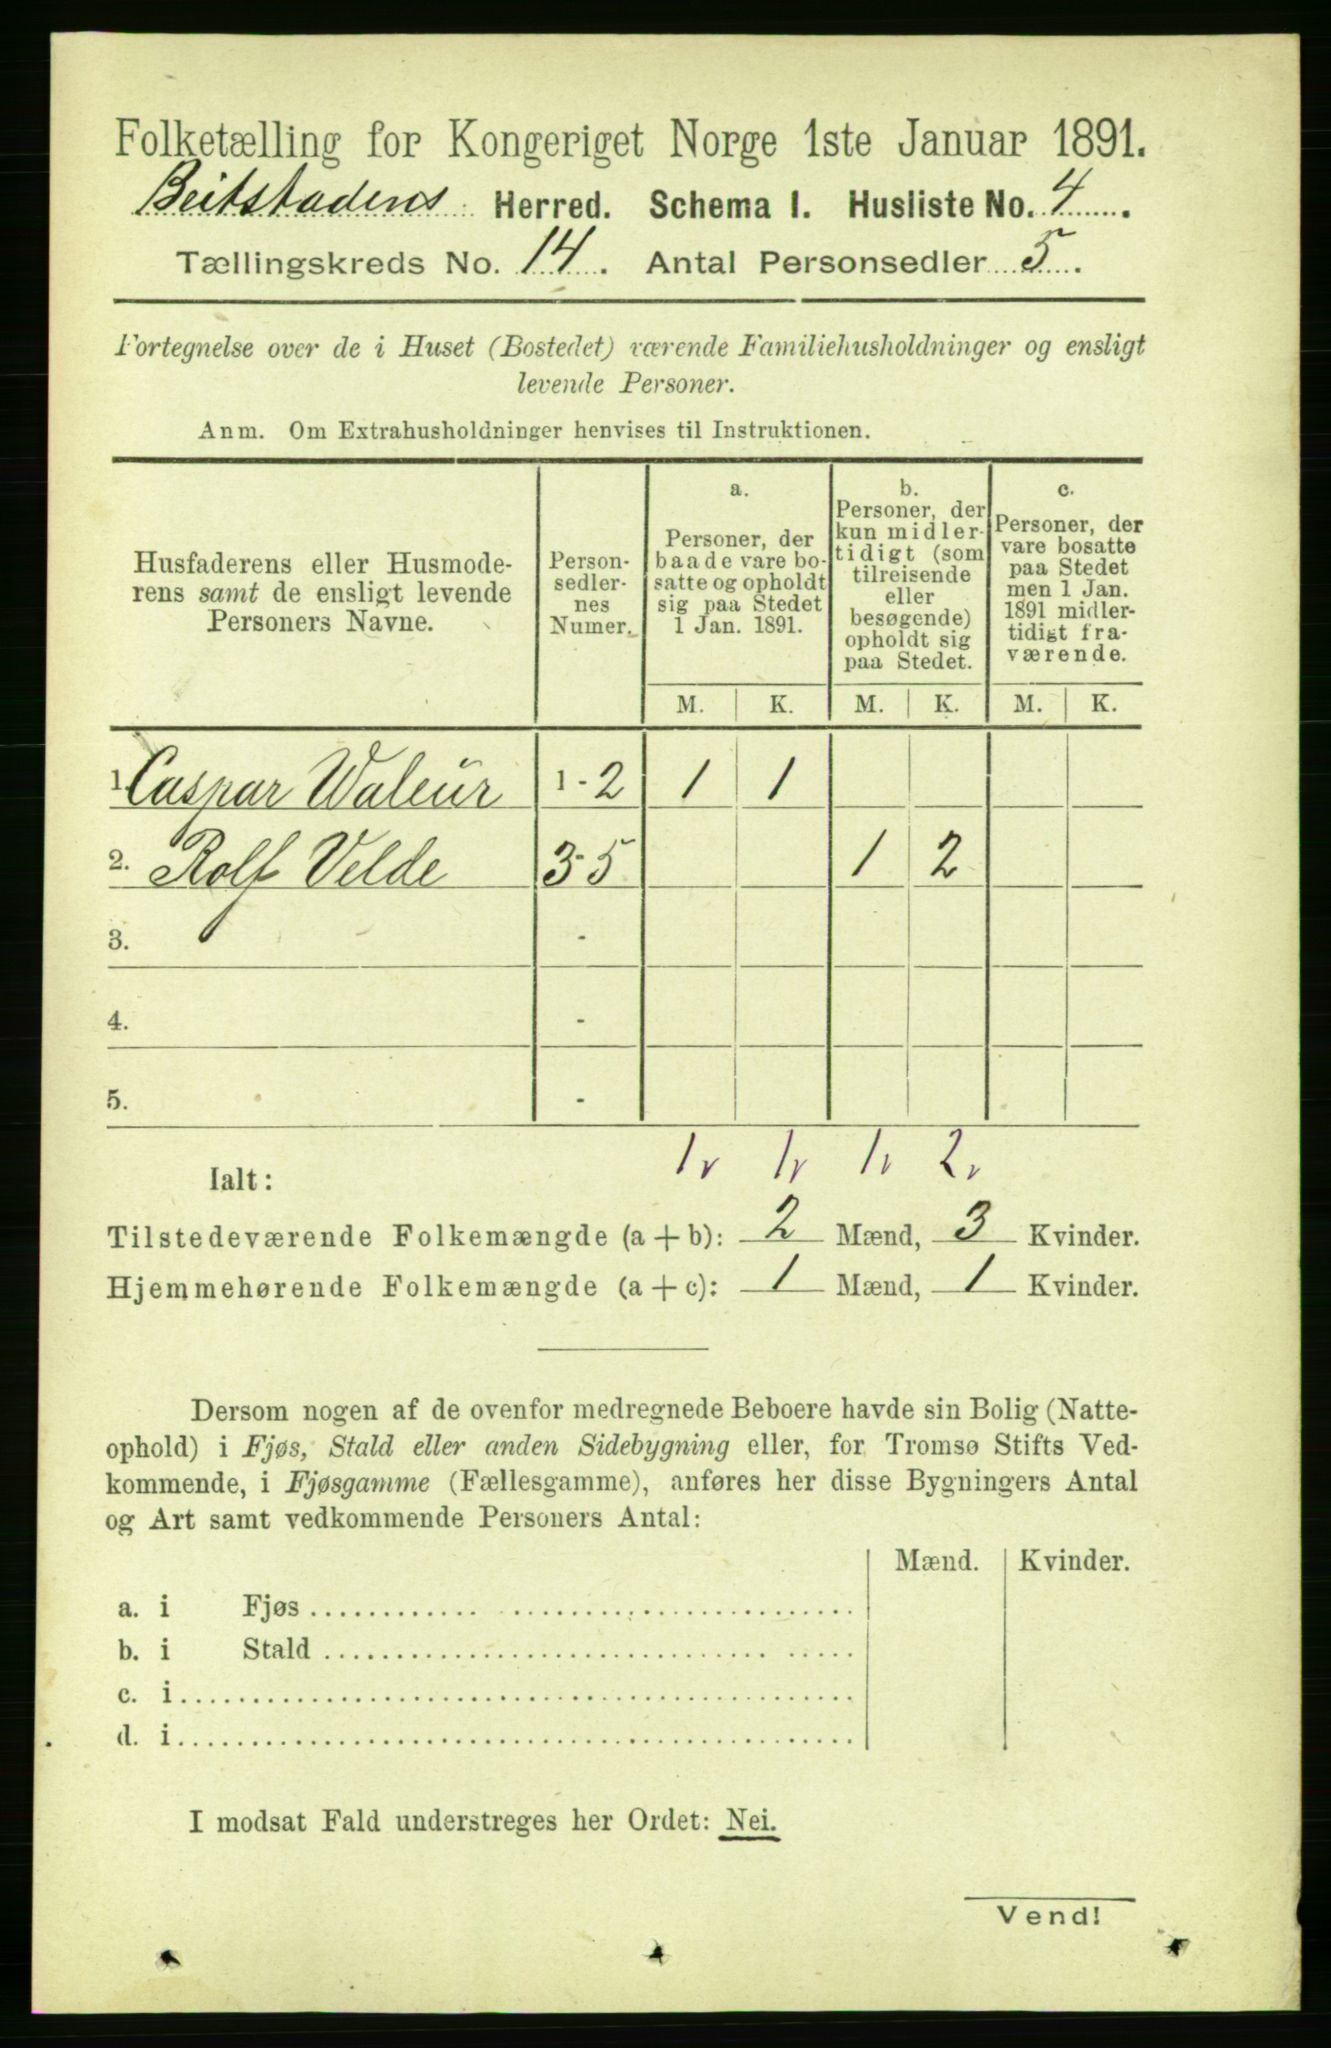 Folketælling for Kongeriget Norge 1ste Januar 1891.
Beitstadens Herred. Schema I. Husliste No. 4.
Tællingskreds No. 14. Antal Personsedler 5.
Fortegnelse over de i Huset (Bostedet) værende Familiehusholdninger og ensligt
levende Personer.
Anm. Om Extrahusholdninger henvises til Instruktionen.
Husfaderens eller Husmode-
rens samt de ensligt levende
Personers Navne.
Person-
sedler-
nes
Numer.
a.
Personer, der
baade vare bo-
satte og opholdt
sig paa Stedet
1 Jan. 1891.
b.
Personer, der
kun midler-
tidigt (som
tilreisende
eller
besøgende)
opholdt sig
paa Stedet.
c.
Personer, der
vare bosatte
paa Stedet
men 1 Jan.
1891 midler-
tidigt fra-
værende.
M. K. M. K. M. K.
1. Caspar Waleur 1-2 1 1
2. Rolf Velde 3-5 1 2
3. -
4. -
5. -
1 1 1 2
Ialt:
Tilstedeværende Folkemængde (a + b): 2 Mænd, 3 Kvinder.
Hjemmehørende Folkemængde (a + c): 1 Mænd, 1 Kvinder.
Dersom nogen af de ovenfor medregnede Beboere havde sin Bolig (Natte-
ophold) i Fjøs, Stald eller anden Sidebygning eller, for Tromsø Stifts Ved-
kommende, i Fjøsgamme (Fællesgamme), anføres her disse Bygningers Antal
og Art samt vedkommende Personers Antal:
Mænd. Kvinder.
a. i Fjøs
b. i Stald
c. i
d. i
I modsat Fald understreges her Ordet: Nei.
Vend!